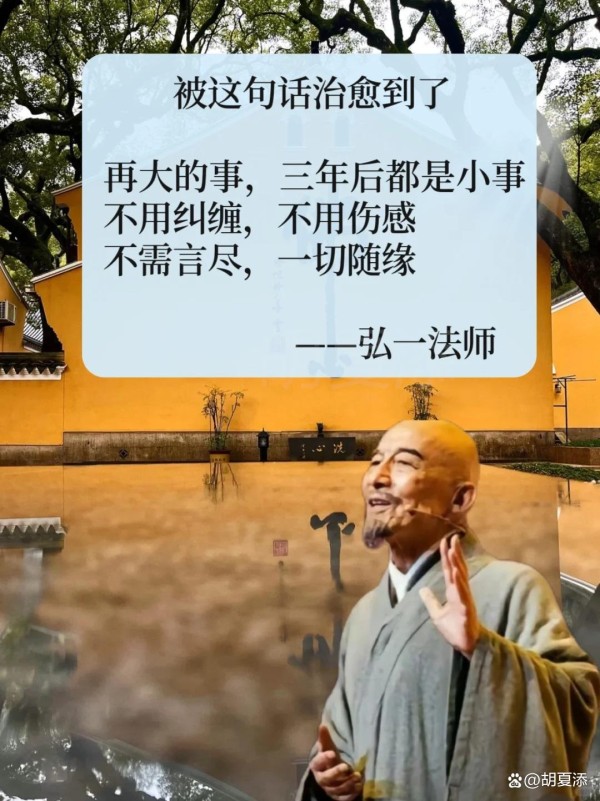 被这句话治愈到了
再大的事，三年后都是小事
不用纠缠，不用伤感
不需言尽，一切随缘
——弘一法师
洗心
@胡夏添